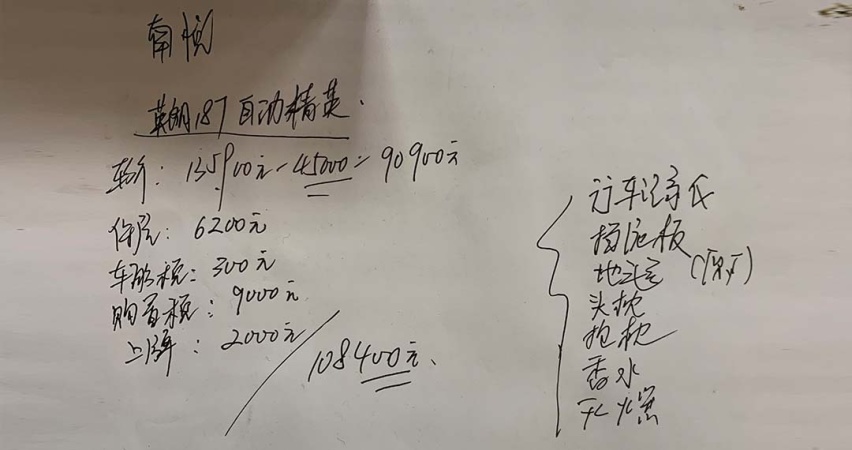 南悦
英朗187自动精英.
车价: 135900元-45000=90900元
保险: 6200元
车船税: 300元
购置税: 9000元
上牌: 2000元
108400元.
行车记录仪
挡泥板
地毯
头枕
抱枕
香水
灭火器